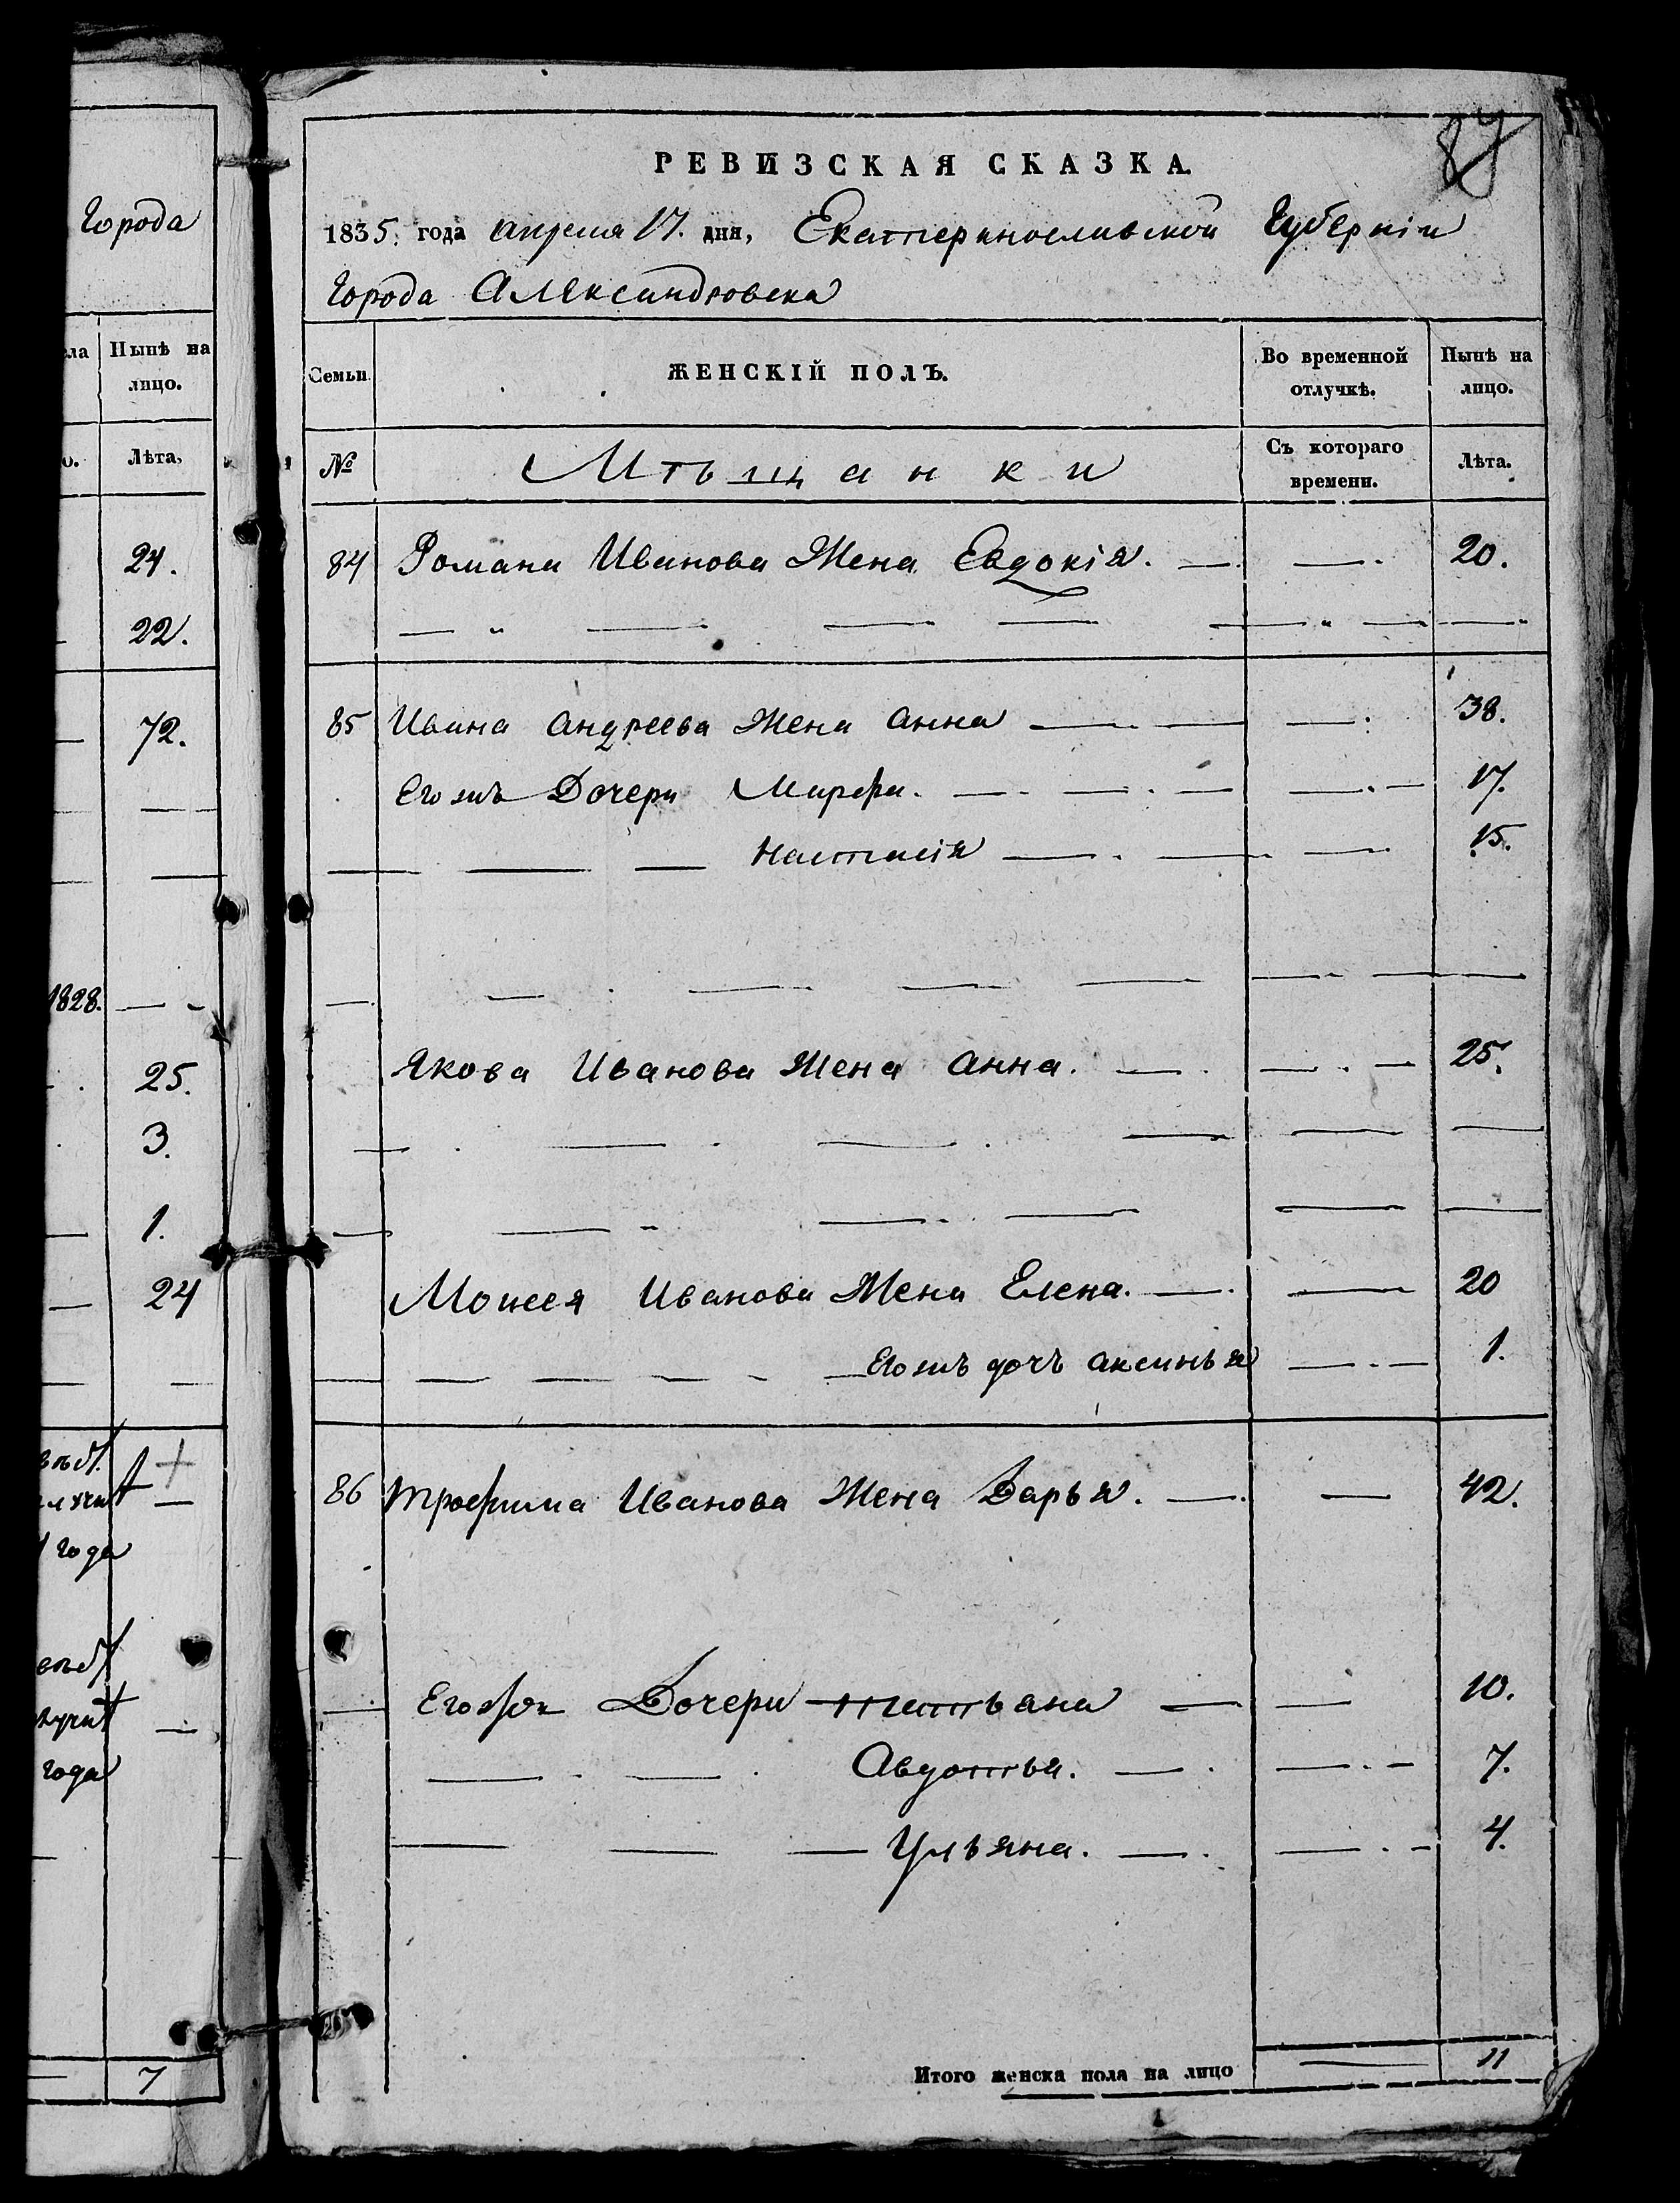 Города
ла Нынѣ на
лицо.
о. Лѣта.
24.
22.
72.
1828.
25.
3.
1.
24
года
года
7
87
РЕВИЗСКАЯ СКАЗКА.
1835. года апреля 17. дня, Екатеринославской Губерніи
Города Александровска
Семьи. ЖЕНСКІЙ ПОЛЪ. Во временной отлучкѣ. Нынѣ на лицо.
№ Мѣщанки Съ котораго времени. Лѣта.
84 Романа Иванова Жена Евдокія. 20.
85 Ивана Андреева Жена Анна 38.
Его жъ Дочери Марфа. 17.
Настасія 15.
Якова Иванова Жена Анна. 25.
Моисея Иванова Жена Елена. 20
Его жъ дочь Аксинья 1.
86 Трофима Иванова Жена Дарья. 42.
Его же Дочери Татьяна 10.
Авдотья. 7.
Ульяна. 4.
Итого женска пола на лицо 11